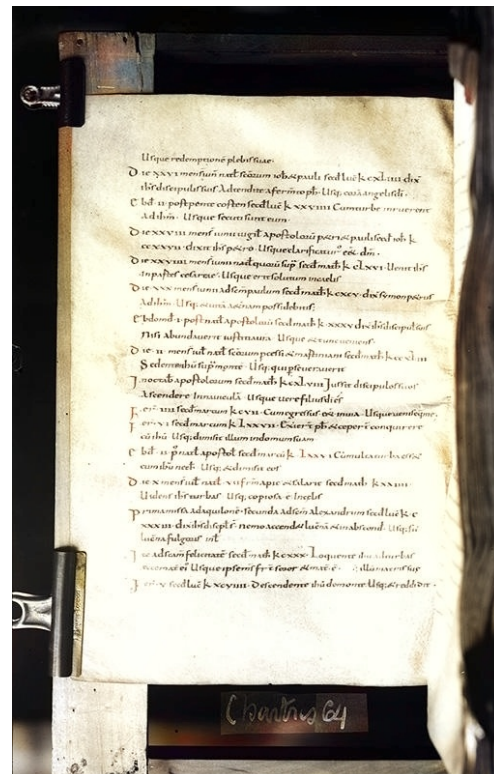 Usque redemptionē plebis suae·
Die XXVI mensiun nat̄ scōrum ioh̄ & pauli secd̄ luc̄ k CXLIIII dix̄
ih̄s discipulis suis Adtendite a fermto ph̄· Usq; corā angelis dī·
Ebd̄·II·post pentecosten secd̄ luc̄ k XXVIIII Cum turbe inruerent
Ad ih̄m· Usque secuti sunt eum·
Die XXVIII mens iun̄ uigil̄ apostolorū p&ri & pauli sec̄ ioh̄ k
CCXXVII· dixit ih̄s p&ro· Usque clarificatur' eē dm̄·
Die XXVIIII mens iun̄ nat̄ quorū sup̄ secd̄ math̄ k CLXVI· Uenit ih̄s
in partes cesareae· Usque erit solutum in caelis
Die XXX mens iun̄ ad sēm paulum secd̄ math̄ k CXCV· dix̄ symon p&rus
Ad ih̄m· Usq; & uitā aet̄nam possidebit·
Ebdomd̄·I·post nat̄ apostolorū secd̄ math̄ k·XXXV dix̄ ih̄s discipulis suis
Nisi abundauerit iustitia ura· Usque
Die·II·mens iul̄ nat̄ scōrum processi & martiniani secd̄ math̄ k
Sedente ih̄u sup̄ monte· Usq; qui p̄seuerauerit
In octab̄ apostolorum secd̄ math̄ k CXLVIII Iussit discipulos suos
Ascendere In nauiculā· Usque uere filius dī es
Fer̄·IIII secd̄ marcum k CVII· Cum egressus eēt in uia· Usque uenit seqme·
Fer̄·VI secd̄ marcum k LXXVII· Exier̄t ph̄ & coeper̄t conquirere
cū ih̄u Usq; dimisit illum in domum suam
Ebd̄·II·p' nat̄ apost̄ol secd̄ marcū k·LXXVI Cū multa turba ess&
cum ih̄u nec h̄· Usq; & dimisit eos
Die X mens iul̄ nat̄·VII fr̄m apic̄ & salarie secd̄ math̄ k XXIIII·
Uidens ih̄s turbas Usq; copiosa·ē·In celis
Prima missa ad aquilone· secunda ad scm̄ alexandrum secd̄ luc̄ k·C
XXXIII·dix̄ ih̄s discpl̄·r· nemo accend& lucn̄ā & in abscond̄· Usq; sic
lucn̄a fulgoris
Ite ad scām felicitatē secd̄ math̄ k CXXX· Loquente ih̄u ad turbas
ecce mat̄ ei' Usque ipse m̄s fr̄· & soror & mat̄·ē·
Fer̄·V secd̄ luc̄ k XCVIIII· Descendente ih̄u de monte· Usq; & reddidit·
Chartres 64